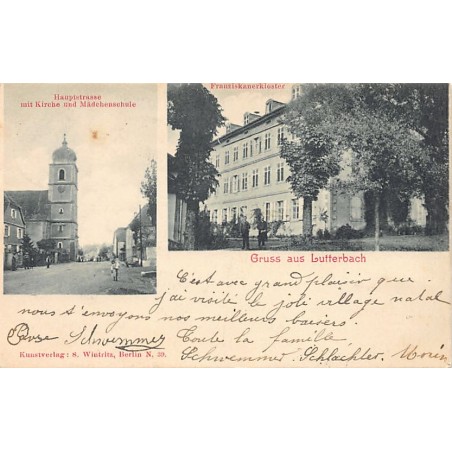 Hauptstrasse
mit Kirche und Mädchenschule
Franziskanerkloster
Gruss aus Lutterbach
C'est avec grand plaisir que
j'ai visité le joli village natal
nous t'envoyons nos meilleurs baisers.
Schwemmer Toute la famille
Schwemmer. Schlachter. Morin
Kunstverlag: S. Wintritz, Berlin N. 39.